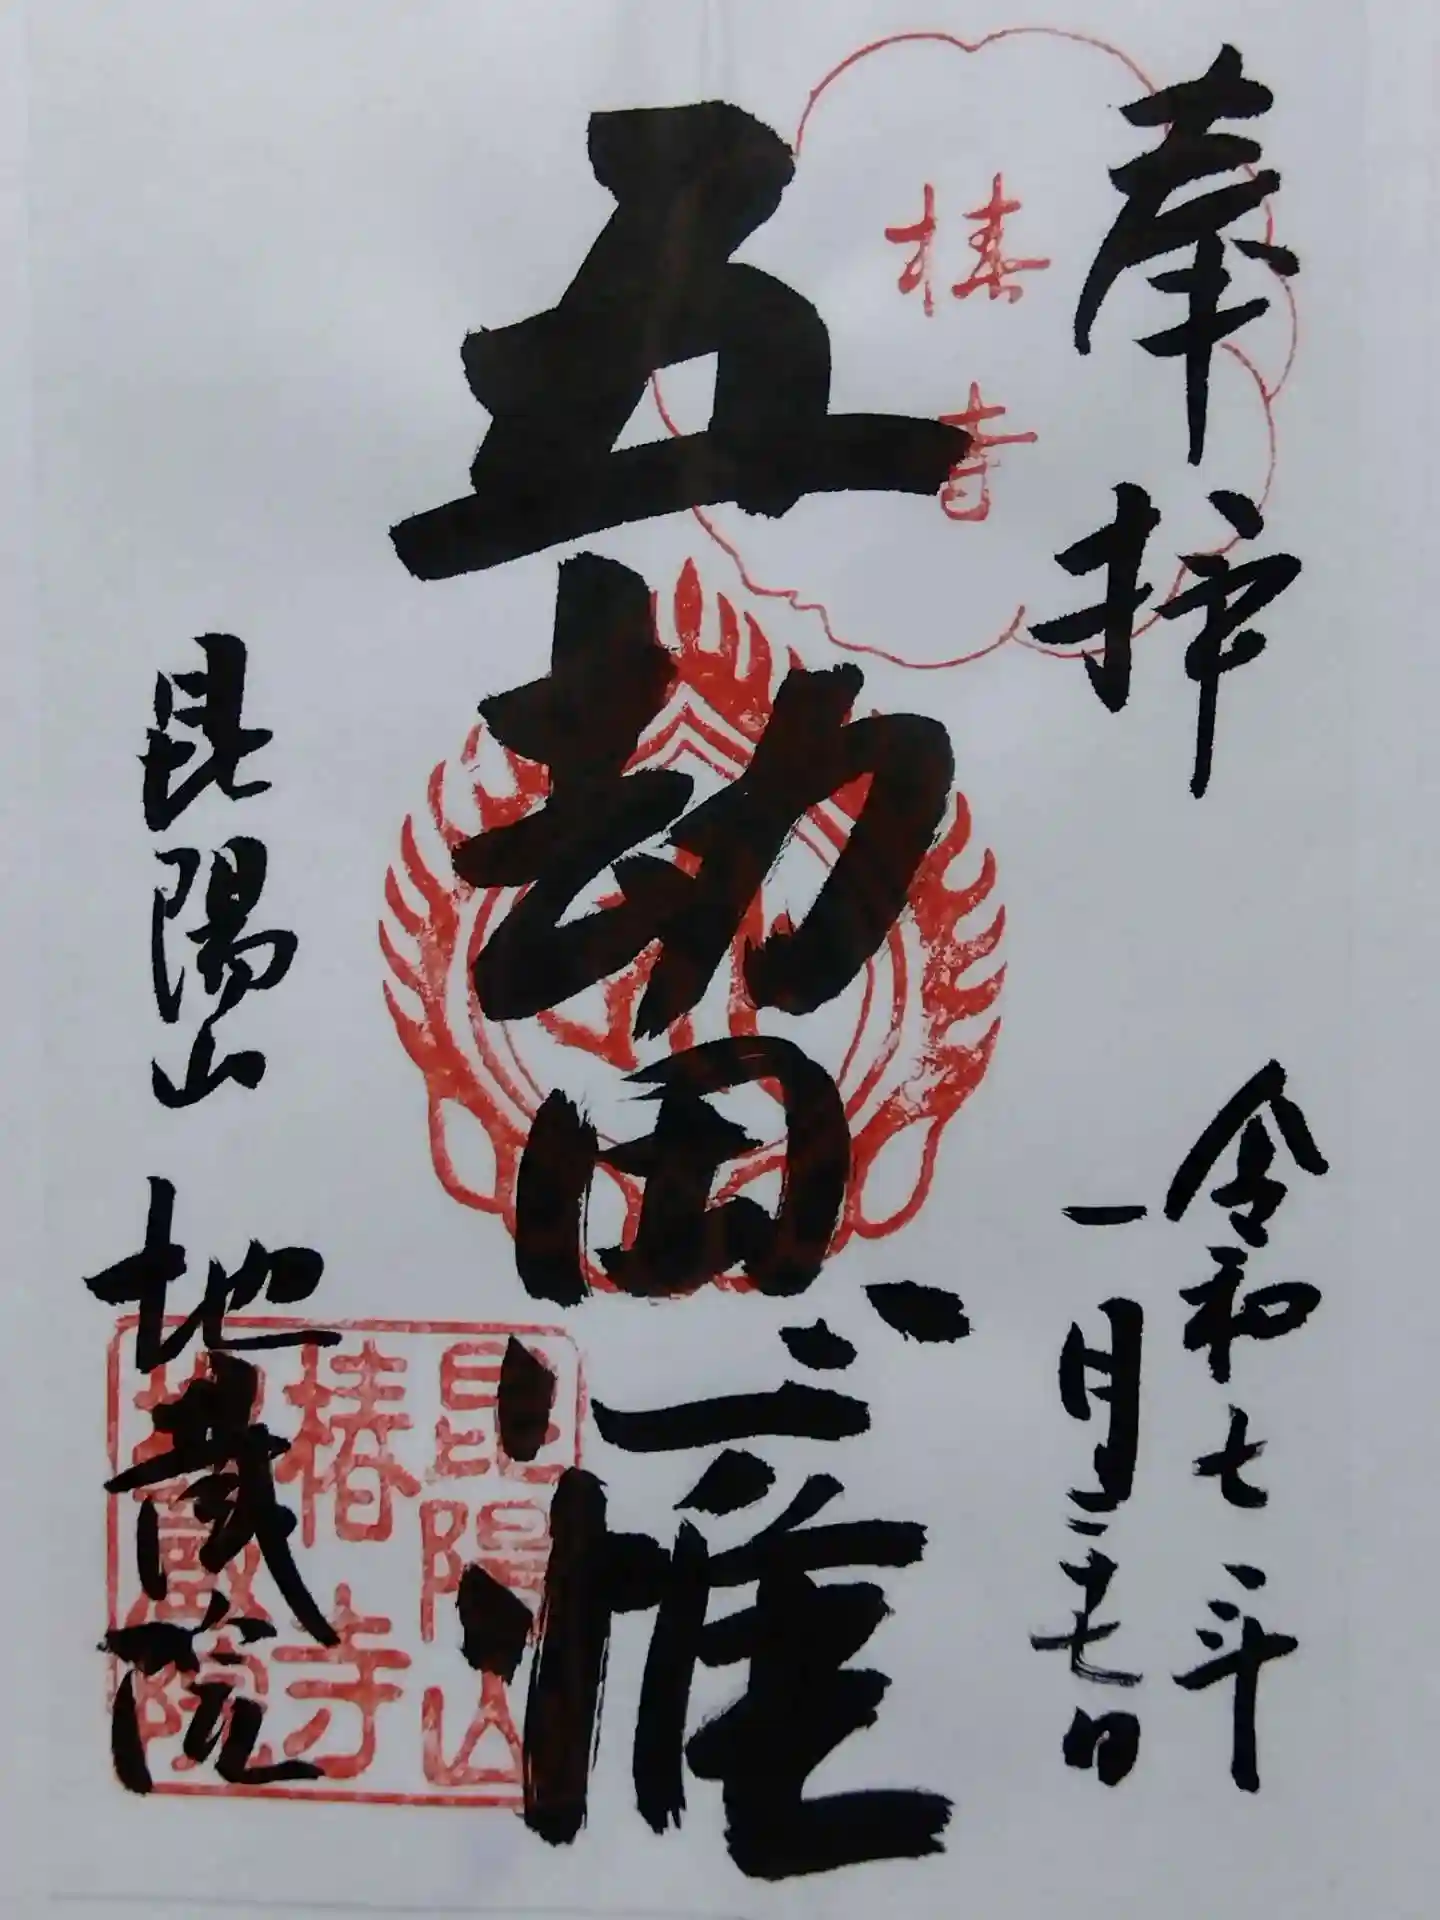 奉拝
令和七年
一月二十七日
椿寺
五劫思惟
昆陽山 地蔵院
昆陽山
椿寺
地蔵院